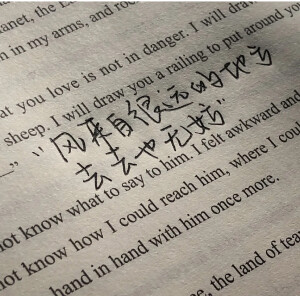 anet, the
in my arms, and rock
at you love is not in danger. I will draw
sheep. I will draw you a railing to put around you
"风来自很远的地方
去去也无妨"
not know what to say to him. I felt awkward and
not know how I could reach him, where I could
hand in hand with him once more.
, the land of tear